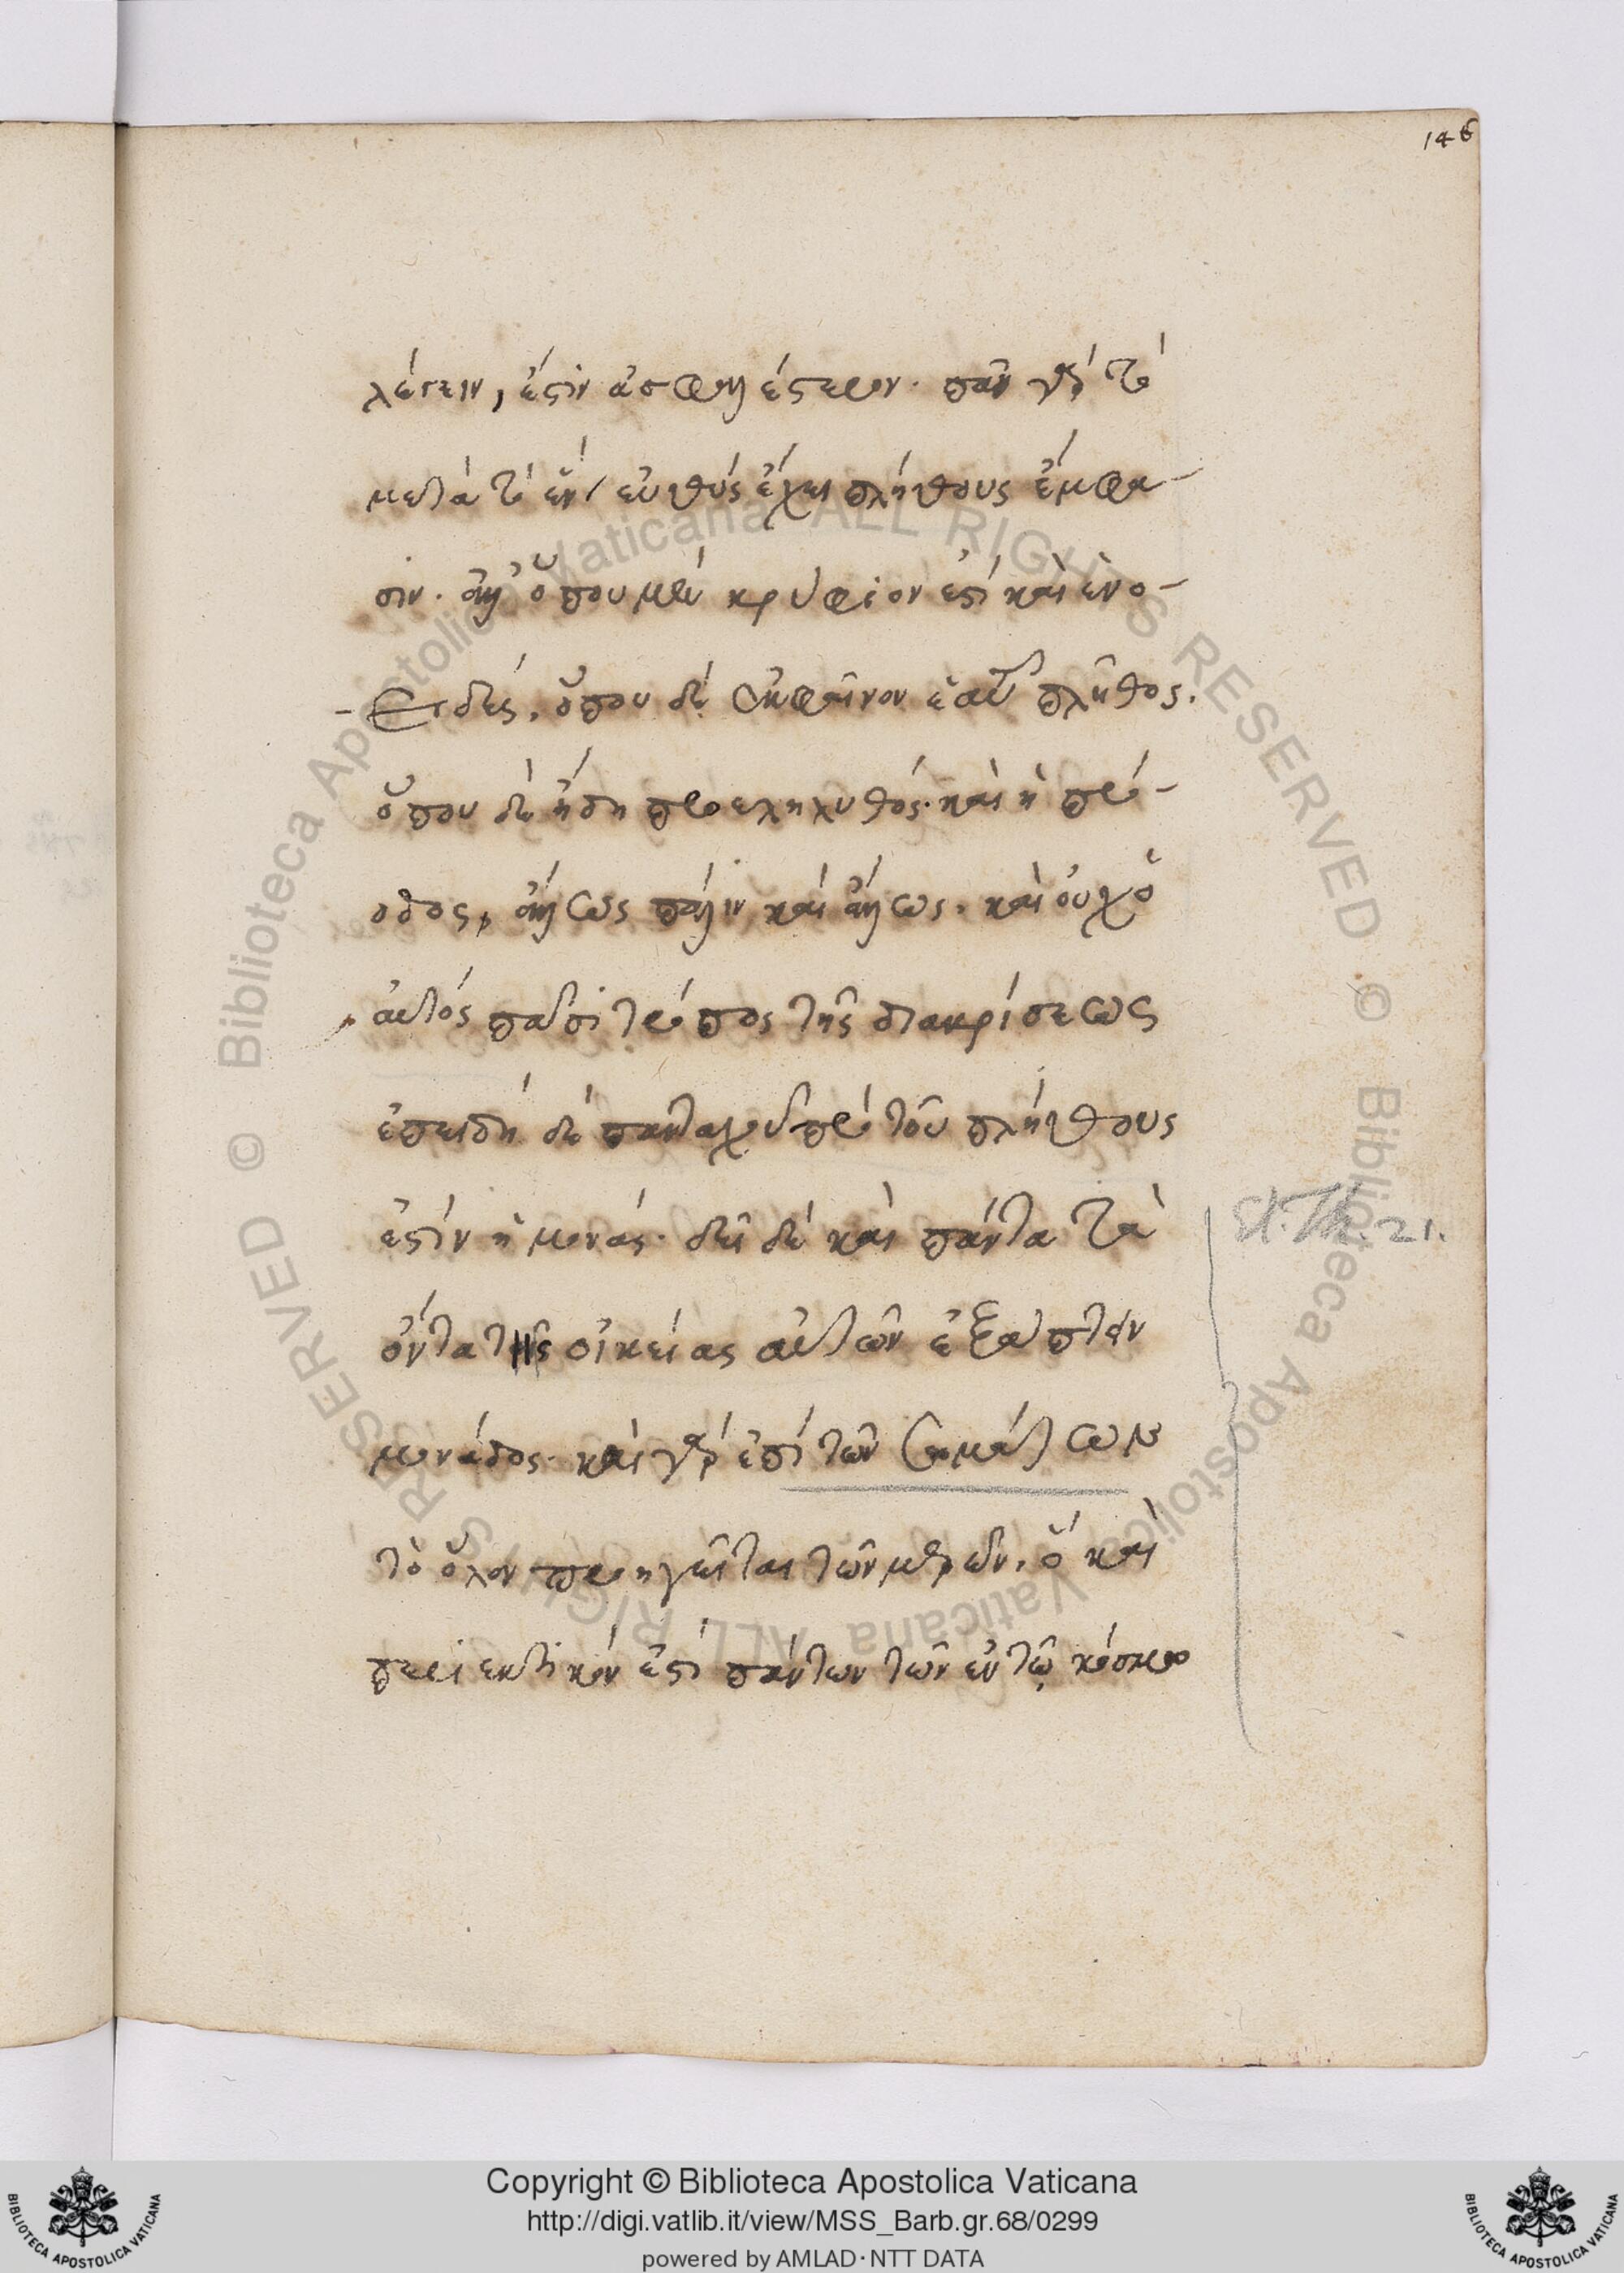 146
λέγειν, ἐστὶν ἀσφαλέστερον. πᾶν γὰρ τὸ
μετὰ τὸ ἓν, εὐθὺς ἔχει πλήθους ἔμφα-
σιν. ἀλλ' ὅπου μὲν κρύφιόν ἐστι καὶ ἑνο-
ειδές, ὅπου δὲ ἐκφαῖνον ἑαυτὸ πλῆθος.
ὅπου δὲ ἤδη προεληλυθός. καὶ ἡ πρό-
οδος, ἄλλως πάλιν καὶ ἄλλως. καὶ οὐχ ὁ
αὐτὸς πᾶσι τρόπος τῆς διακρίσεως
ἐπειδὴ δὲ πανταχοῦ πρὸ τοῦ πλήθους
ἐστὶν ἡ μονάς. δεῖ δὲ καὶ πάντα τὰ
ὄντα τῆς οἰκείας αὐτῶν ἐξάπτειν
μονάδος. καὶ γὰρ ἐπὶ τῶν σωμάτων
τὸ ὅλον προηγεῖται τῶν μερῶν, ὃ καὶ
περιεκτικόν ἐστι πάντων τῶν ἐν τῷ κόσμῳ
St. Th. 21.
Copyright © Biblioteca Apostolica Vaticana
http://digi.vatlib.it/view/MSS_Barb.gr.68/0299
powered by AMLAD·NTT DATA
BIBLIOTECA APOSTOLICA VATICANA
BIBLIOTECA APOSTOLICA VATICANA
© Biblioteca Apostolica Vaticana ALL RIGHTS RESERVED © Biblioteca Apostolica Vaticana ALL RIGHTS RESERVED